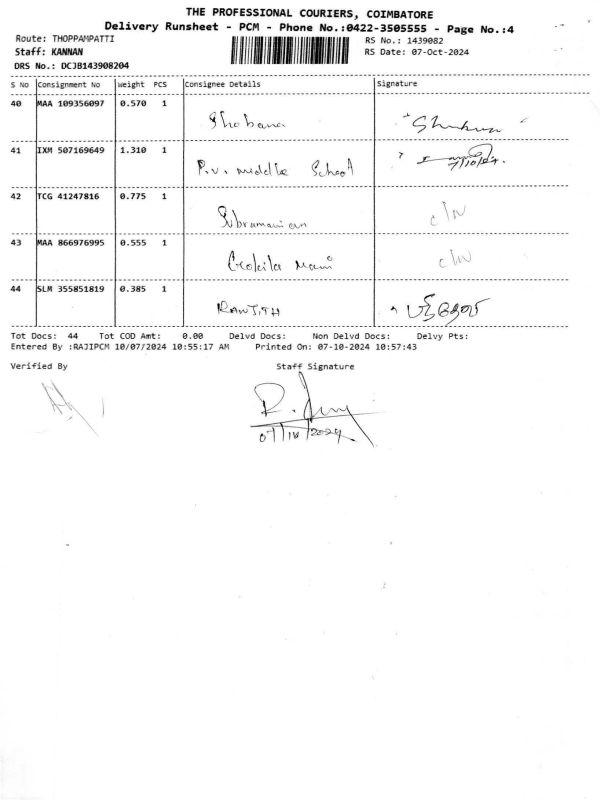 THE PROFESSIONAL COURIERS, COIMBATORE
Delivery Runsheet - PCM - Phone No.:0422-3505555 - Page No.:4
Route: THOPPAMPATTI RS No.: 1439082
Staff: KANNAN RS Date: 07-Oct-2024
DRS No.: DCJB143908204
S No Consignment No Weight PCS Consignee Details Signature
40 MAA 109356097 0.570 1
Shobana
41 IXM 507169649 1.310 1
P.V. middle School 7/10/24.
42 TCG 41247816 0.775 1
Subramanian c/N
43 MAA 866976995 0.555 1
Gokila Mani c/N
44 SLM 355851819 0.385 1
RANJITH
Tot Docs: 44 Tot COD Amt: 0.00 Delvd Docs: Non Delvd Docs: Delvy Pts:
Entered By :RAJIPCM 10/07/2024 10:55:17 AM Printed On: 07-10-2024 10:57:43
Verified By Staff Signature
07/10/2024